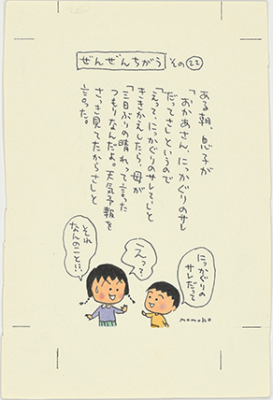 ぜんぜんちがう その22
ある朝、息子が
「おかあさん、にっかぐりのサレ
だってさ」というので
「えっ、にっかぐりのサレ?」と
ききかえしたら、母が
「三日ぶりの晴れって言った
つもりなんだよ。天気予報を
さっき見てたからさ」と
言った。
にっかぐりの
サレだって
えっ?
それ
なんのこと!?
momoko